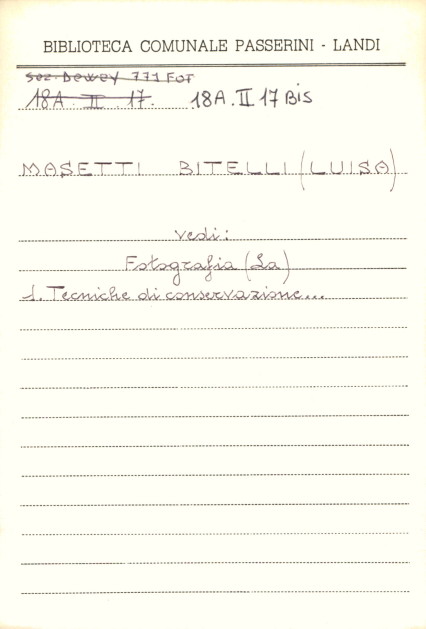 BIBLIOTECA COMUNALE PASSERINI - LANDI
Sez. Dewey 771 FOT
18A. II. 17. 18A. II 17 BIS
MASETTI BITELLI (LUISA)
vedi:
Fotografia (La)
1. Tecniche di conservazione...